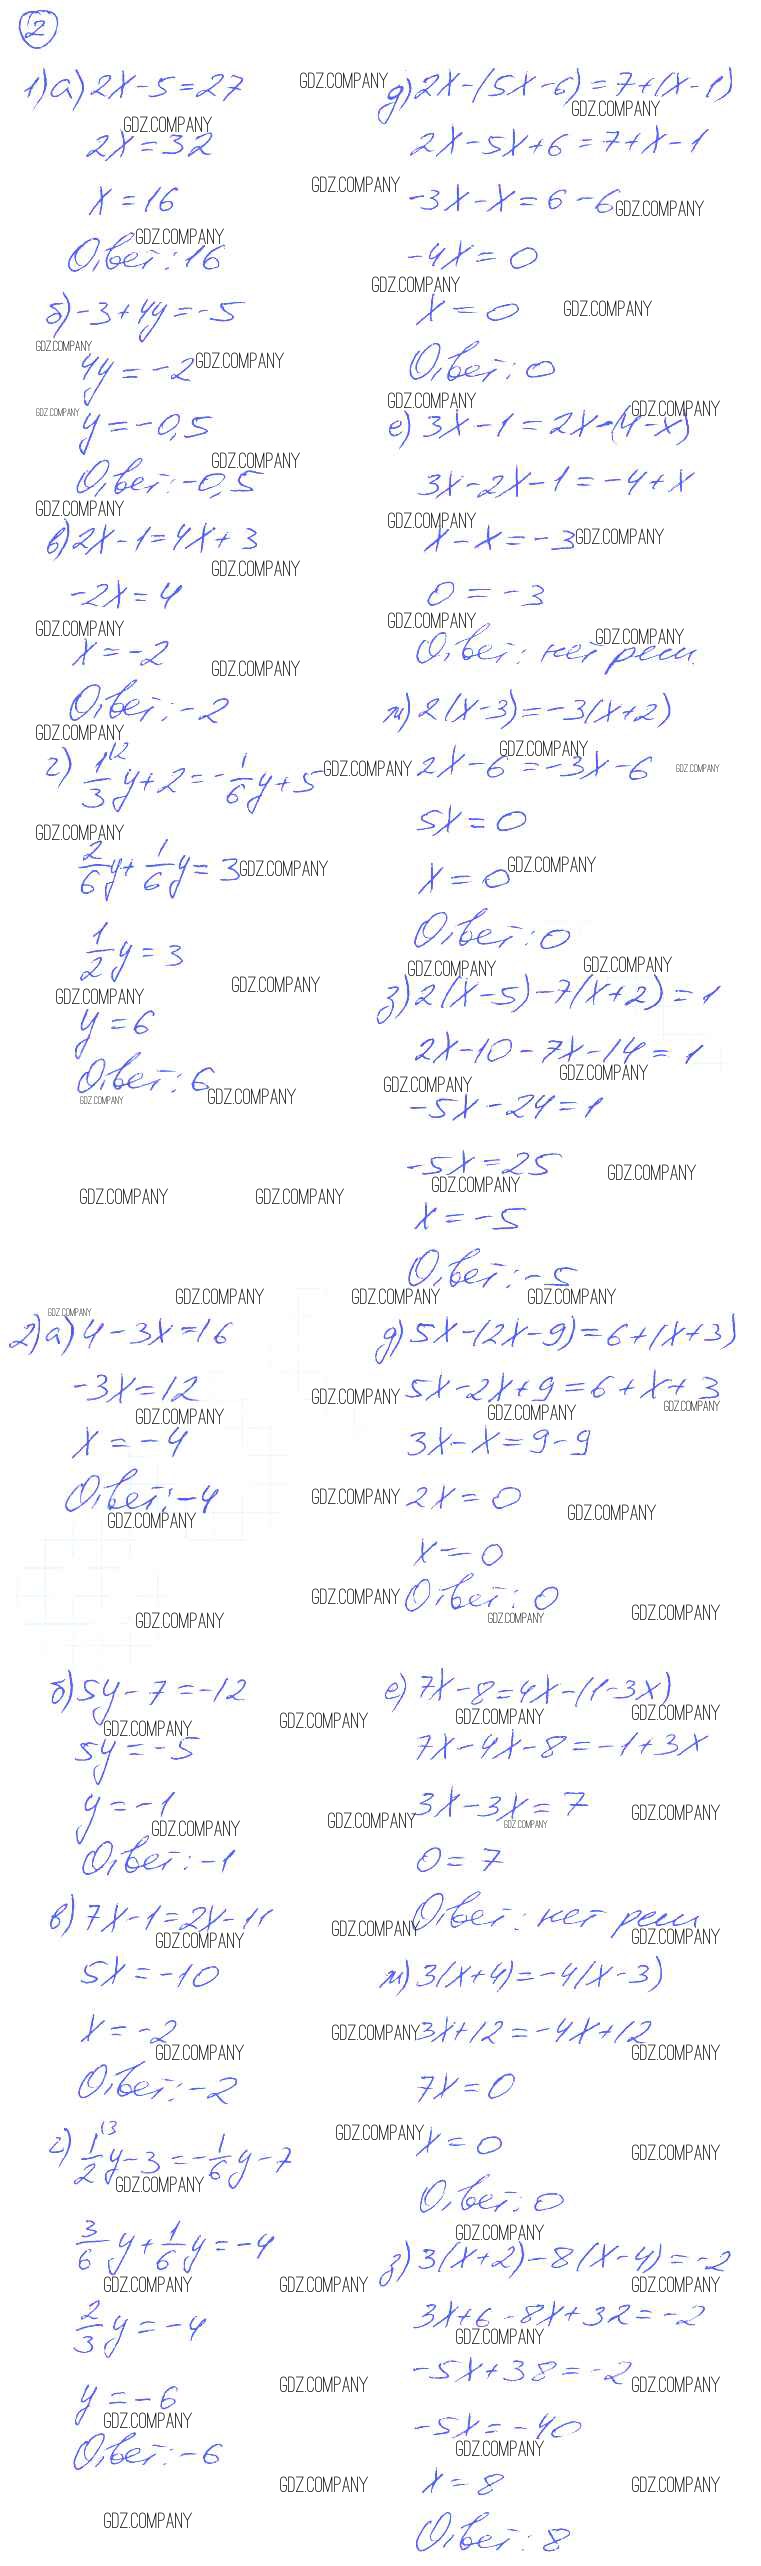 2
1) а) 2x - 5 = 27
2x = 32
x = 16
Ответ: 16
б) -3 + 4y = -5
4y = -2
y = -0,5
Ответ: -0,5
в) 2x - 1 = 4x + 3
-2x = 4
x = -2
Ответ: -2
г) 1/3 \2 y + 2 = -1/6 y + 5
2/6 y + 1/6 y = 3
1/2 y = 3
y = 6
Ответ: 6
д) 2x - (5x - 6) = 7 + (x - 1)
2x - 5x + 6 = 7 + x - 1
-3x - x = 6 - 6
-4x = 0
x = 0
Ответ: 0
е) 3x - 1 = 2x - (4 - x)
3x - 2x - 1 = -4 + x
x - x = -3
0 = -3
Ответ: нет реш.
ж) 2(x - 3) = -3(x + 2)
2x - 6 = -3x - 6
5x = 0
x = 0
Ответ: 0
з) 2(x - 5) - 7(x + 2) = 1
2x - 10 - 7x - 14 = 1
-5x - 24 = 1
-5x = 25
x = -5
Ответ: -5
2) а) 4 - 3x = 16
-3x = 12
x = -4
Ответ: -4
б) 5y - 7 = -12
5y = -5
y = -1
Ответ: -1
в) 7x - 1 = 2x - 11
5x = -10
x = -2
Ответ: -2
г) 1/2 \3 y - 3 = -1/6 y - 7
3/6 y + 1/6 y = -4
2/3 y = -4
y = -6
Ответ: -6
д) 5x - (2x - 9) = 6 + (x + 3)
5x - 2x + 9 = 6 + x + 3
3x - x = 9 - 9
2x = 0
x = 0
Ответ: 0
е) 7x - 8 = 4x - (1 - 3x)
7x - 4x - 8 = -1 + 3x
3x - 3x = 7
0 = 7
Ответ: нет реш.
ж) 3(x + 4) = -4(x - 3)
3x + 12 = -4x + 12
7x = 0
x = 0
Ответ: 0
з) 3(x + 2) - 8(x - 4) = -2
3x + 6 - 8x + 32 = -2
-5x + 38 = -2
-5x = -40
x = 8
Ответ: 8
GDZ.COMPANY